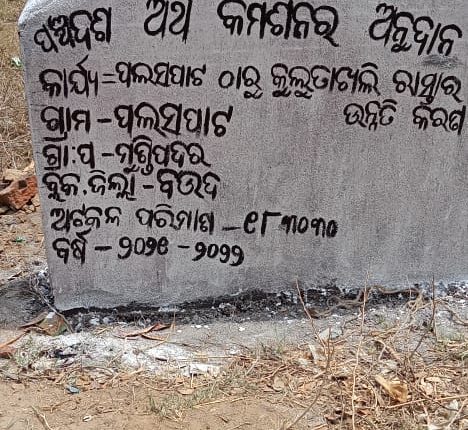 ପଞ୍ଚଦଶ ଅଥ କମଶନର ଅନୁଦାନ
କାର୍ଯ୍ୟ=ପଲସପାଟ ଠାରୁ କୁଲୁତାଖଲି ରାସ୍ତାର
ଗ୍ରାମ - ପଲସପାଟ ଉନ୍ନତି କରଣ
ଗ୍ରା:ପ - ମୁଣ୍ଡିପଦର
ବ୍ଲକ.ଜିଲ୍ଲା - ବଉଦ
ଅଟକଳ ପରିମାଣ - ୧୮୩୦୩୦
ବର୍ଷ - ୨୦୨୧ - ୨୦୨୨